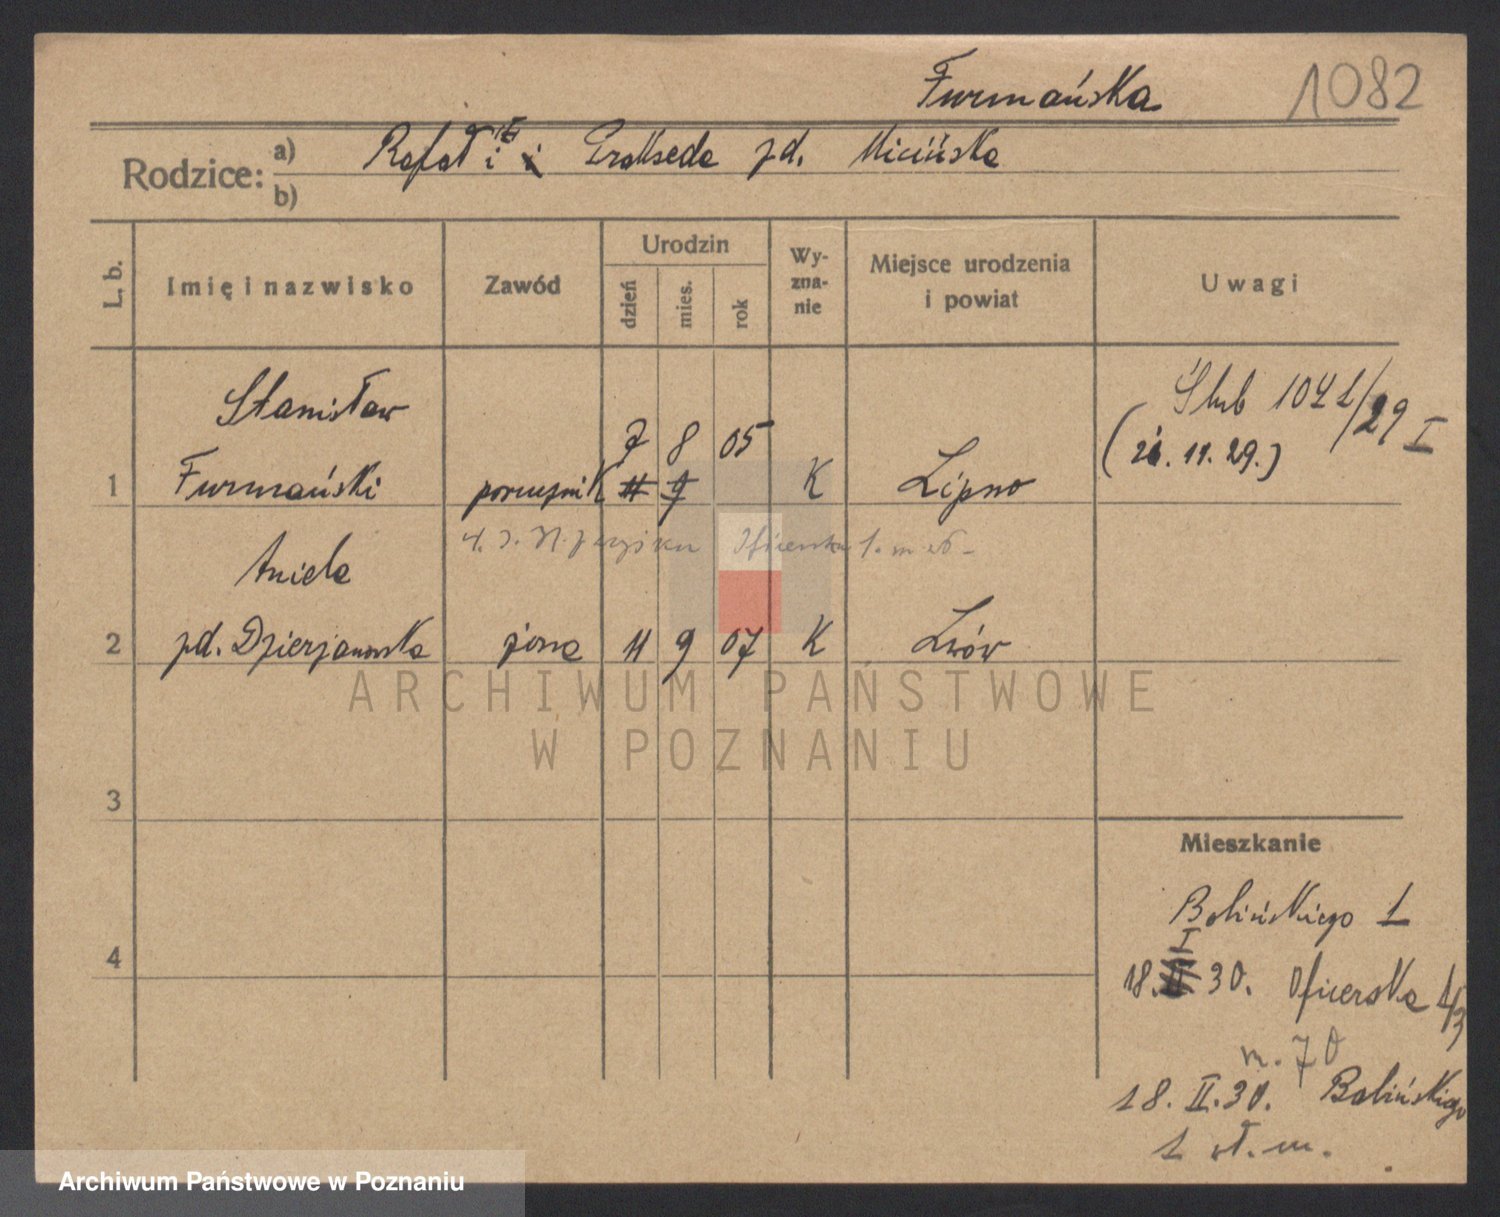 Furmańska 1082
Rodzice: a) Rafał i Prakseda zd. Micińska
b)
L. b. Imię i nazwisko Zawód Urodzin dzień mies. rok Wyznanie Miejsce urodzenia i powiat Uwagi
Stanisław
7 8 05
Ślub 1041/29 I
(21. 11. 29.)
1 Furmański porucznik 11 9 K Lipno
Aniela
2 zd. Dzierżanowska żona 11 9 07 K Lwów
ARCHIWUM PAŃSTWOWE
W POZNANIU
3
Mieszkanie
Bolińskiego 1
4
I
18. II. 30. Oficerska 1/3
m. 70
18. II. 30. Bolińskiego
1 wł. m.
Archiwum Państwowe w Poznaniu